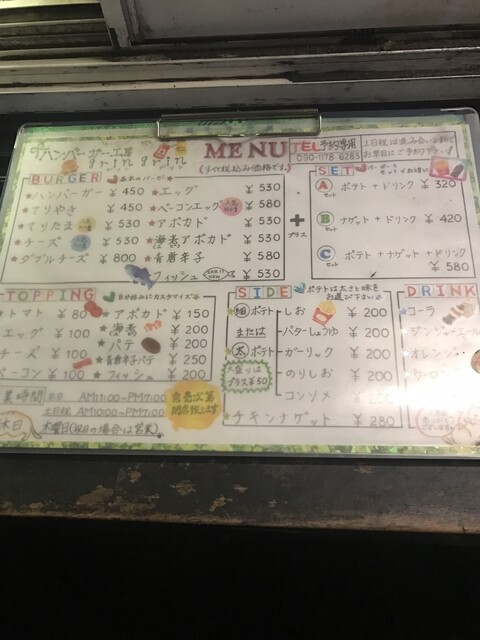 ハンバーガー工房
grin grin
MENU
(すべて税込み価格です。)
TEL予約専用
090-1178-6285
土日祝は混み合います。
お早目にご予約下さい!!
BURGER
★ハンバーガー ¥450
★てりやき ¥450
★てりたま ¥530
★チーズ ¥530
★ダブルチーズ ¥800
★エッグ ¥530
★ベーコンエッグ ¥580
★アボカド ¥530
★海老アボカド ¥530
★青唐辛子 ¥580
フィッシュ ¥530
+
プラス
SET
A セット ポテト+ドリンク ¥320
B セット ナゲット+ドリンク ¥420
C セット ポテト+ナゲット+ドリンク
¥580
TOPPING
お好みにカスタマイズ
トマト ¥80
エッグ ¥100
チーズ ¥100
ベーコン ¥100
★アボカド ¥150
★海老 ¥200
★パテ ¥200
★青唐辛子パテ ¥250
★フィッシュ ¥200
SIDE
ポテトは太さと味を
お選び下さい
細ポテト
または
太ポテト
大盛りは
プラス¥50
しお ¥200
バターしょうゆ ¥200
ガーリック ¥200
のりしお ¥200
コンソメ ¥200
★チキンナゲット ¥280
DRINK
★コーラ
オレンジ
業時間 平日 AM11:00~PM7:00
土日祝 AM10:00~PM7:00
休日 木曜日(祝日の場合は営業)
完売次第
閉店致します